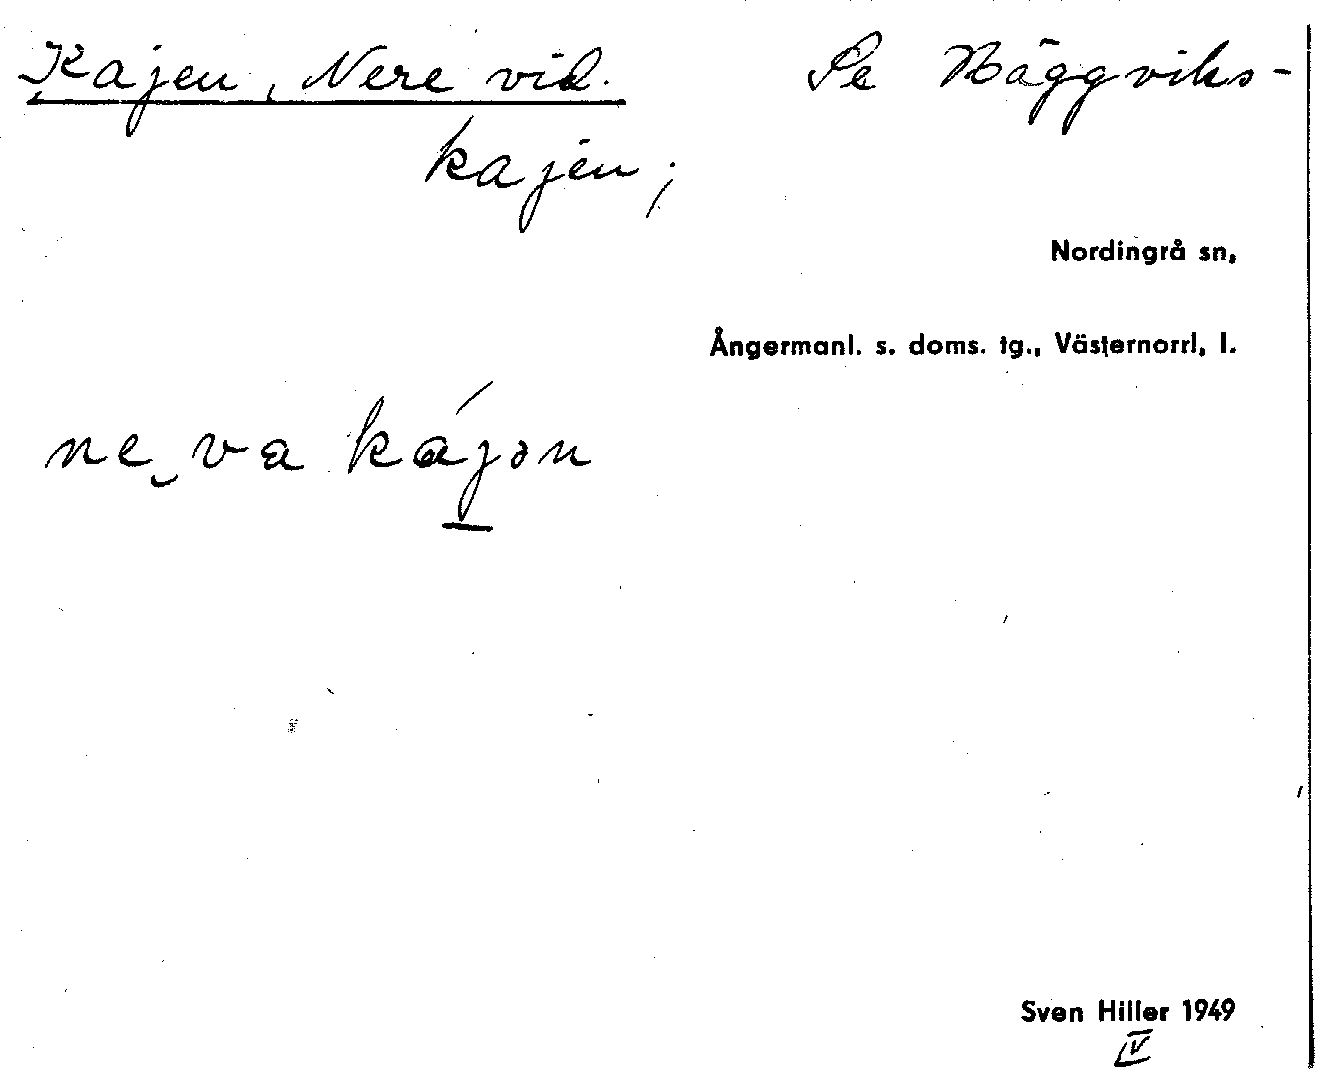 Kajen, Nere vid. Se Häggviks-
kajen;
Nordingrå sn,
Ångermanl. s. doms. tg., Västernorrl, l.
ne‿va kájən
Sven Hiller 1949
IV